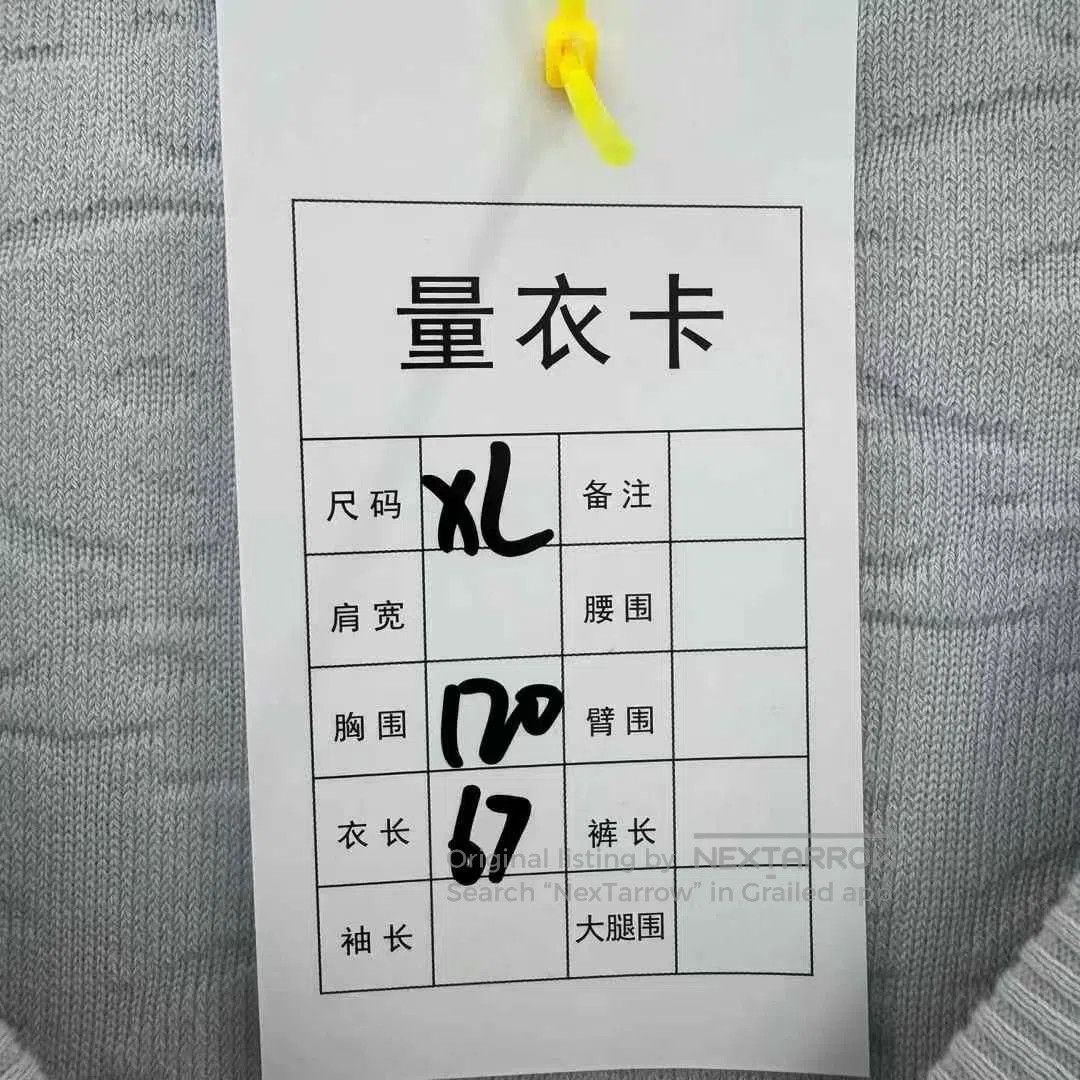 量衣卡
尺码 XL 备注
肩宽 腰围
胸围 120 臂围
衣长 67 裤长
袖长 大腿围
Original listing by NEXTARROW
Search “NexTarrow” in Grailed app